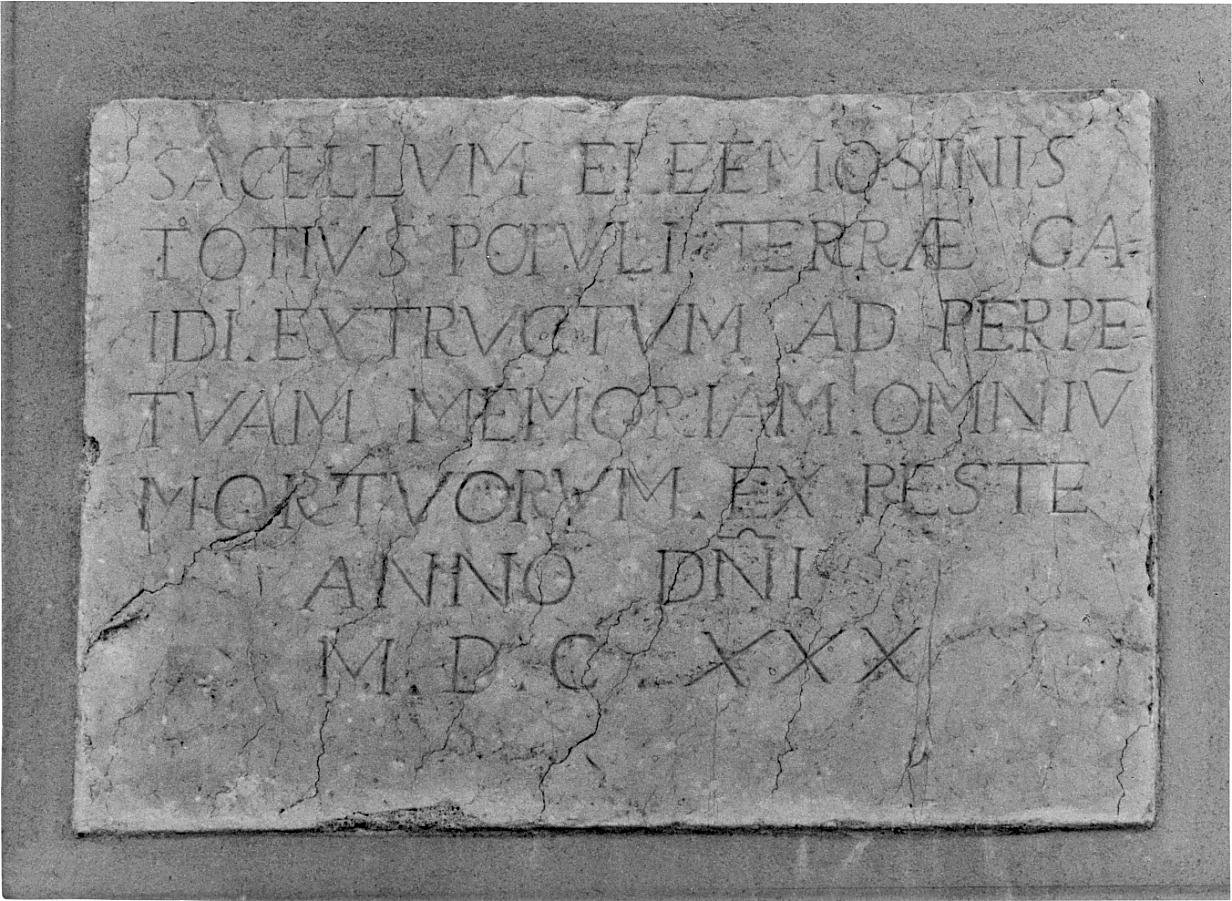 SACELLVM ELEEMOSINIS
TOTIVS POPVLI TERRÆ GA=
IDI. EXTRVCTVM AD PERPE=
TVAM MEMORIAM. OMNIV̄
MORTVORVM. EX PESTE
ANNO DÑI
M. D. C. XXX